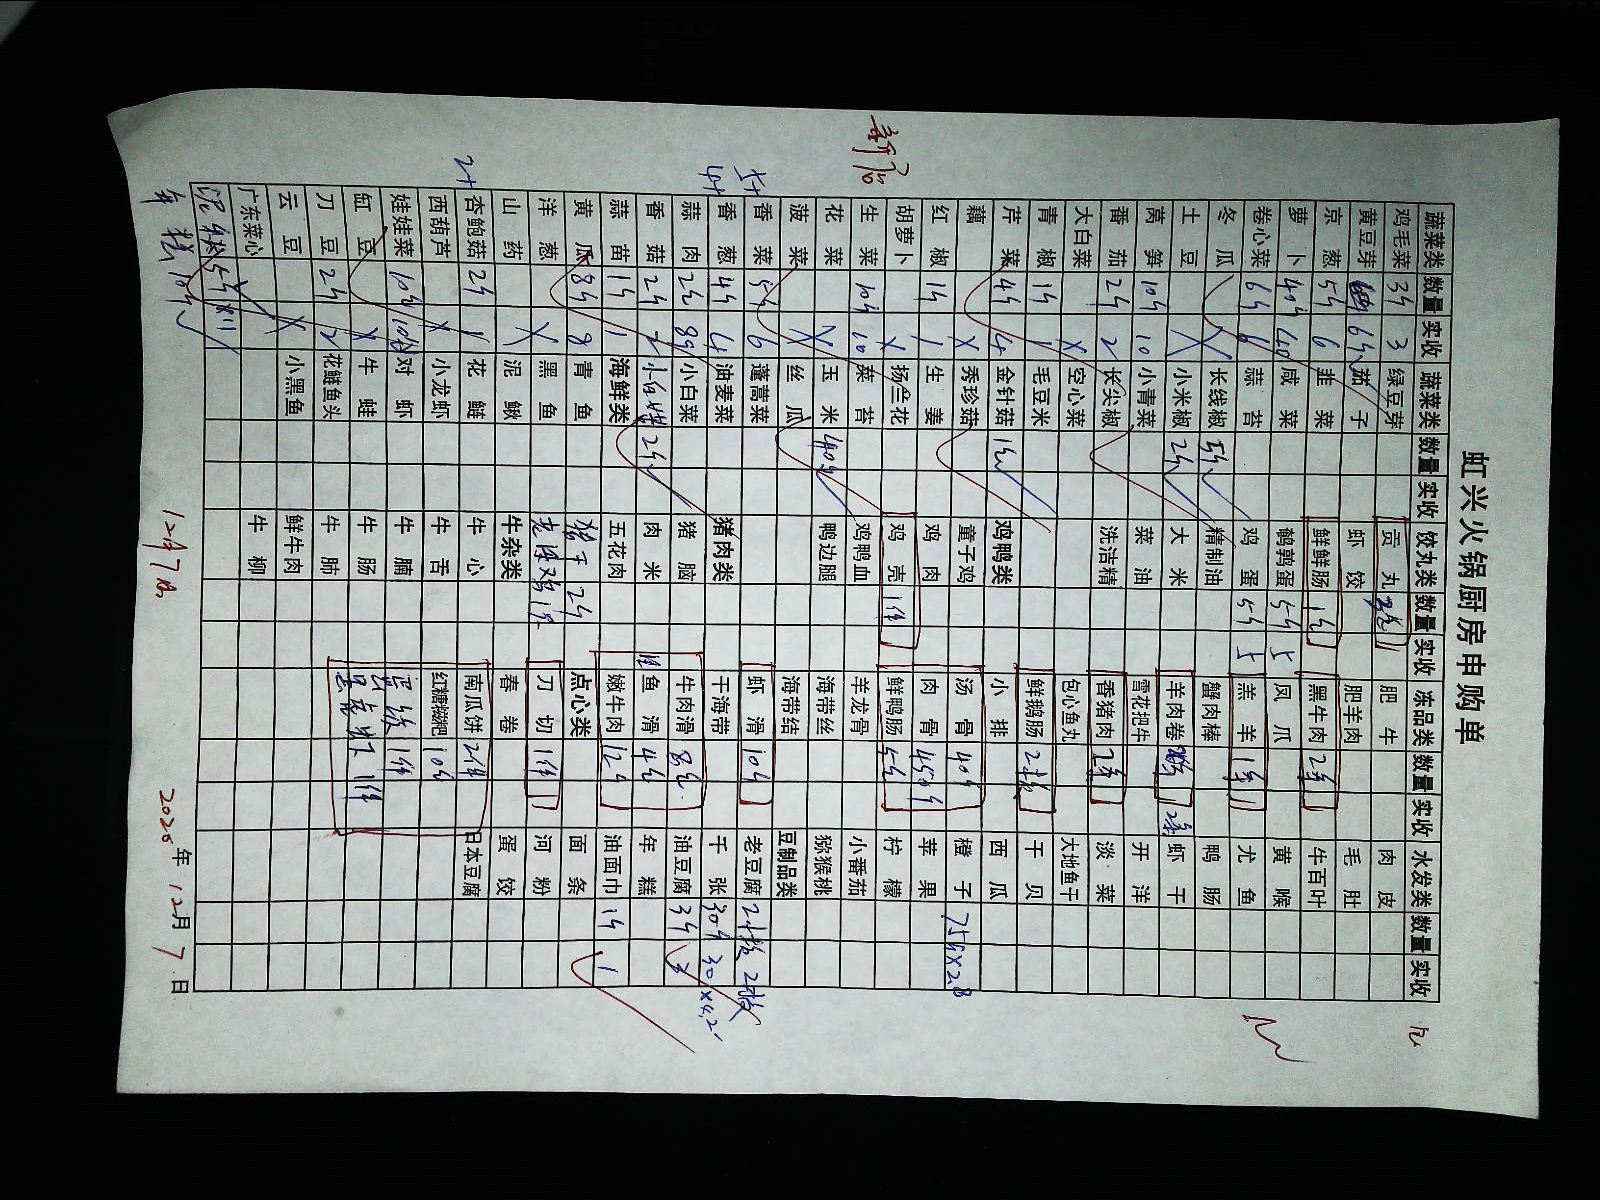 虹兴火锅厨房申购单
蔬菜类 数量 实收 蔬菜类 数量 实收 饺丸类 数量 实收 冻品类 数量 实收 水发类 数量 实收
鸡毛菜 3斤 3 绿豆芽 贡丸 肥牛 肉皮
黄豆芽 6斤 茄子 虾饺 肥羊肉 毛肚
京葱 5斤 6 韭菜 鲜鲜肠 1包 黑牛肉 2条 牛百叶
萝卜 40斤 40 咸菜 鹌鹑蛋 5斤 5 凤爪 黄喉
卷心菜 6斤 6 蒜苔 鸡蛋 5斤 5 羔羊 1条 尤鱼
冬瓜 X 长线椒 5斤 精制油 蟹肉棒 鸭肠
土豆 X 小米椒 2斤 大米 羊肉卷 2条 虾干
莴笋 10斤 10 小青菜 菜油 雪花把牛 开洋
番茄 2斤 2 长尖椒 洗洁精 香猪肉 2条 淡菜
大白菜 X 空心菜 包心鱼丸 大地鱼干
青椒 1斤 1 毛豆米 鲜鹅肠 2板 干贝
芹菜 4斤 4 金针菇 1包 鸡鸭类 小排 西瓜
藕 X 秀珍菇 童子鸡 汤骨 40斤 橙子 75斤×2.8
红椒 1斤 1 生姜 鸡肉 肉骨 450斤 苹果
胡萝卜 X 扬兰花 鸡壳 1件 鲜鸭肠 5包 柠檬
生菜 10斤 10 菜苔 鸡鸭血 羊龙骨 小番茄
花菜 X 玉米 40斤 鸭边腿 海带丝 猕猴桃
菠菜 X 丝瓜 海带结 豆制品类
5+ 香菜 5斤 6 蓬蒿菜 虾滑 10斤 老豆腐 2板 2板
4+ 香葱 4斤 4 油麦菜 猪肉类 干海带 千张 30斤 30×4.2
蒜肉 2斤 小白菜 猪脑 牛肉滑 8包 油豆腐 3斤 3
香菇 2斤 2 2斤 肉米 鱼滑 4包 年糕
蒜苗 1斤 1 海鲜类 五花肉 嫩牛肉 12斤 油面巾 1斤 1
黄瓜 8斤 8 青鱼 猪干 2斤 点心类 面条
洋葱 X 黑鱼 刀切 1件 河粉
山药 X 泥鳅 牛杂类 春卷 蛋饺
2+ 杏鲍菇 2斤 1 花鲢 牛心 南瓜饼 2件 日本豆腐
西胡芦 X 小龙虾 牛舌 红糖糍粑 10包
娃娃菜 10包 10包 对虾 牛腩 1件
缸豆 X 牛蛙 牛肠 1件
刀豆 2斤 2 花鲢鱼头 牛肺
云豆 X 小黑鱼 鲜牛肉
广东菜心 牛柳
5斤
年糕 10斤
12月7日
2025年12月7日